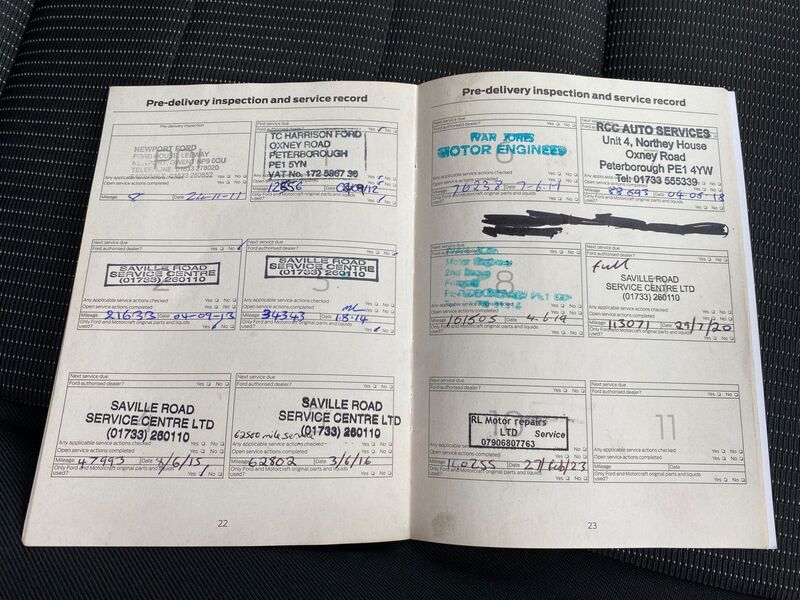 Pre-delivery inspection and service record
Pre-delivery inspection
NEWPORT FORD
FORD HOUSE LEEWAY
NEWPORT, GWENT NP9 0QU
TELEPHONE: 01633 278020
Open service actions completed Yes No
Mileage Date 21-11-11
First service due
Ford authorised dealer? Yes No
TC HARRISON FORD
OXNEY ROAD
PETERBOROUGH
PE1 5YN
VAT No. 172 5867 36
Mileage 12856 Date 09/12
Only Ford and Motorcraft original parts and liquids
used? Yes No
Next service due
Ford authorised dealer? Yes No
2
SAVILLE ROAD
SERVICE CENTRE
(01733) 260110
Any applicable service actions checked Yes No
Open service actions completed Yes No
Mileage 21633 Date 04-09-13
Only Ford and Motorcraft original parts and liquids
used? Yes No
Next service due
Ford authorised dealer? Yes No
3
SAVILLE ROAD
SERVICE CENTRE
(01733) 260110
Any applicable service actions checked Yes No
Open service actions completed Yes No
Mileage 34343 Date 1.8.14
Only Ford and Motorcraft original parts and liquids
used? Yes No
Next service due
Ford authorised dealer? Yes No
SAVILLE ROAD
SERVICE CENTRE LTD
(01733) 260110
Any applicable service actions checked Yes No
Open service actions completed Yes No
Mileage 47993 Date /6/15
Only Ford and Motorcraft original parts and liquids
used? Yes No
Next service due
Ford authorised dealer? Yes No
SAVILLE ROAD
SERVICE CENTRE LTD
(01733) 260110
62500 mile service
Any applicable service actions checked Yes No
Open service actions completed Yes No
Mileage 62802 Date 3/6/16
Only Ford and Motorcraft original parts and liquids
used? Yes No
22
Pre-delivery inspection and service record
Next service due
IVAN JONES
MOTOR ENGINEER
6
Any applicable service actions checked Yes No
Open service actions completed Yes No
Mileage 70238 Date 7-6-17
Only Ford and Motorcraft original parts and liquids
RCC AUTO SERVICES
Unit 4, Northey House
Oxney Road
Peterborough PE1 4YW
Tel: 01733 555339
Mileage 88693 Date 04-08-18
Only Ford and Motorcraft original parts and liquids
Next service due
Ford authorised dealer? Yes No
8
Any applicable service actions checked
Open service actions completed Yes No
Mileage 101505 Date 4-6-19
Only Ford and Motorcraft original parts and liquids
used? Yes No
Next service due
Ford authorised dealer? Yes No
full
SAVILLE ROAD
SERVICE CENTRE LTD
(01733) 260110
Any applicable service actions checked Yes No
Open service actions completed Yes No
Mileage 113071 Date 29/7/20
Only Ford and Motorcraft original parts and liquids
used? Yes No
Next service due
Ford authorised dealer? Yes No
10
RL Motor repairs
LTD Service
07906807763
Any applicable service actions checked Yes No
Open service actions completed Yes No
Mileage 140255 Date 27/Feb/23
Only Ford and Motorcraft original parts and liquids
used? Yes No
Next service due
Ford authorised dealer? Yes No
11
Any applicable service actions checked Yes No
Open service actions completed Yes No
Mileage Date
Only Ford and Motorcraft original parts and liquids
used? Yes No
23